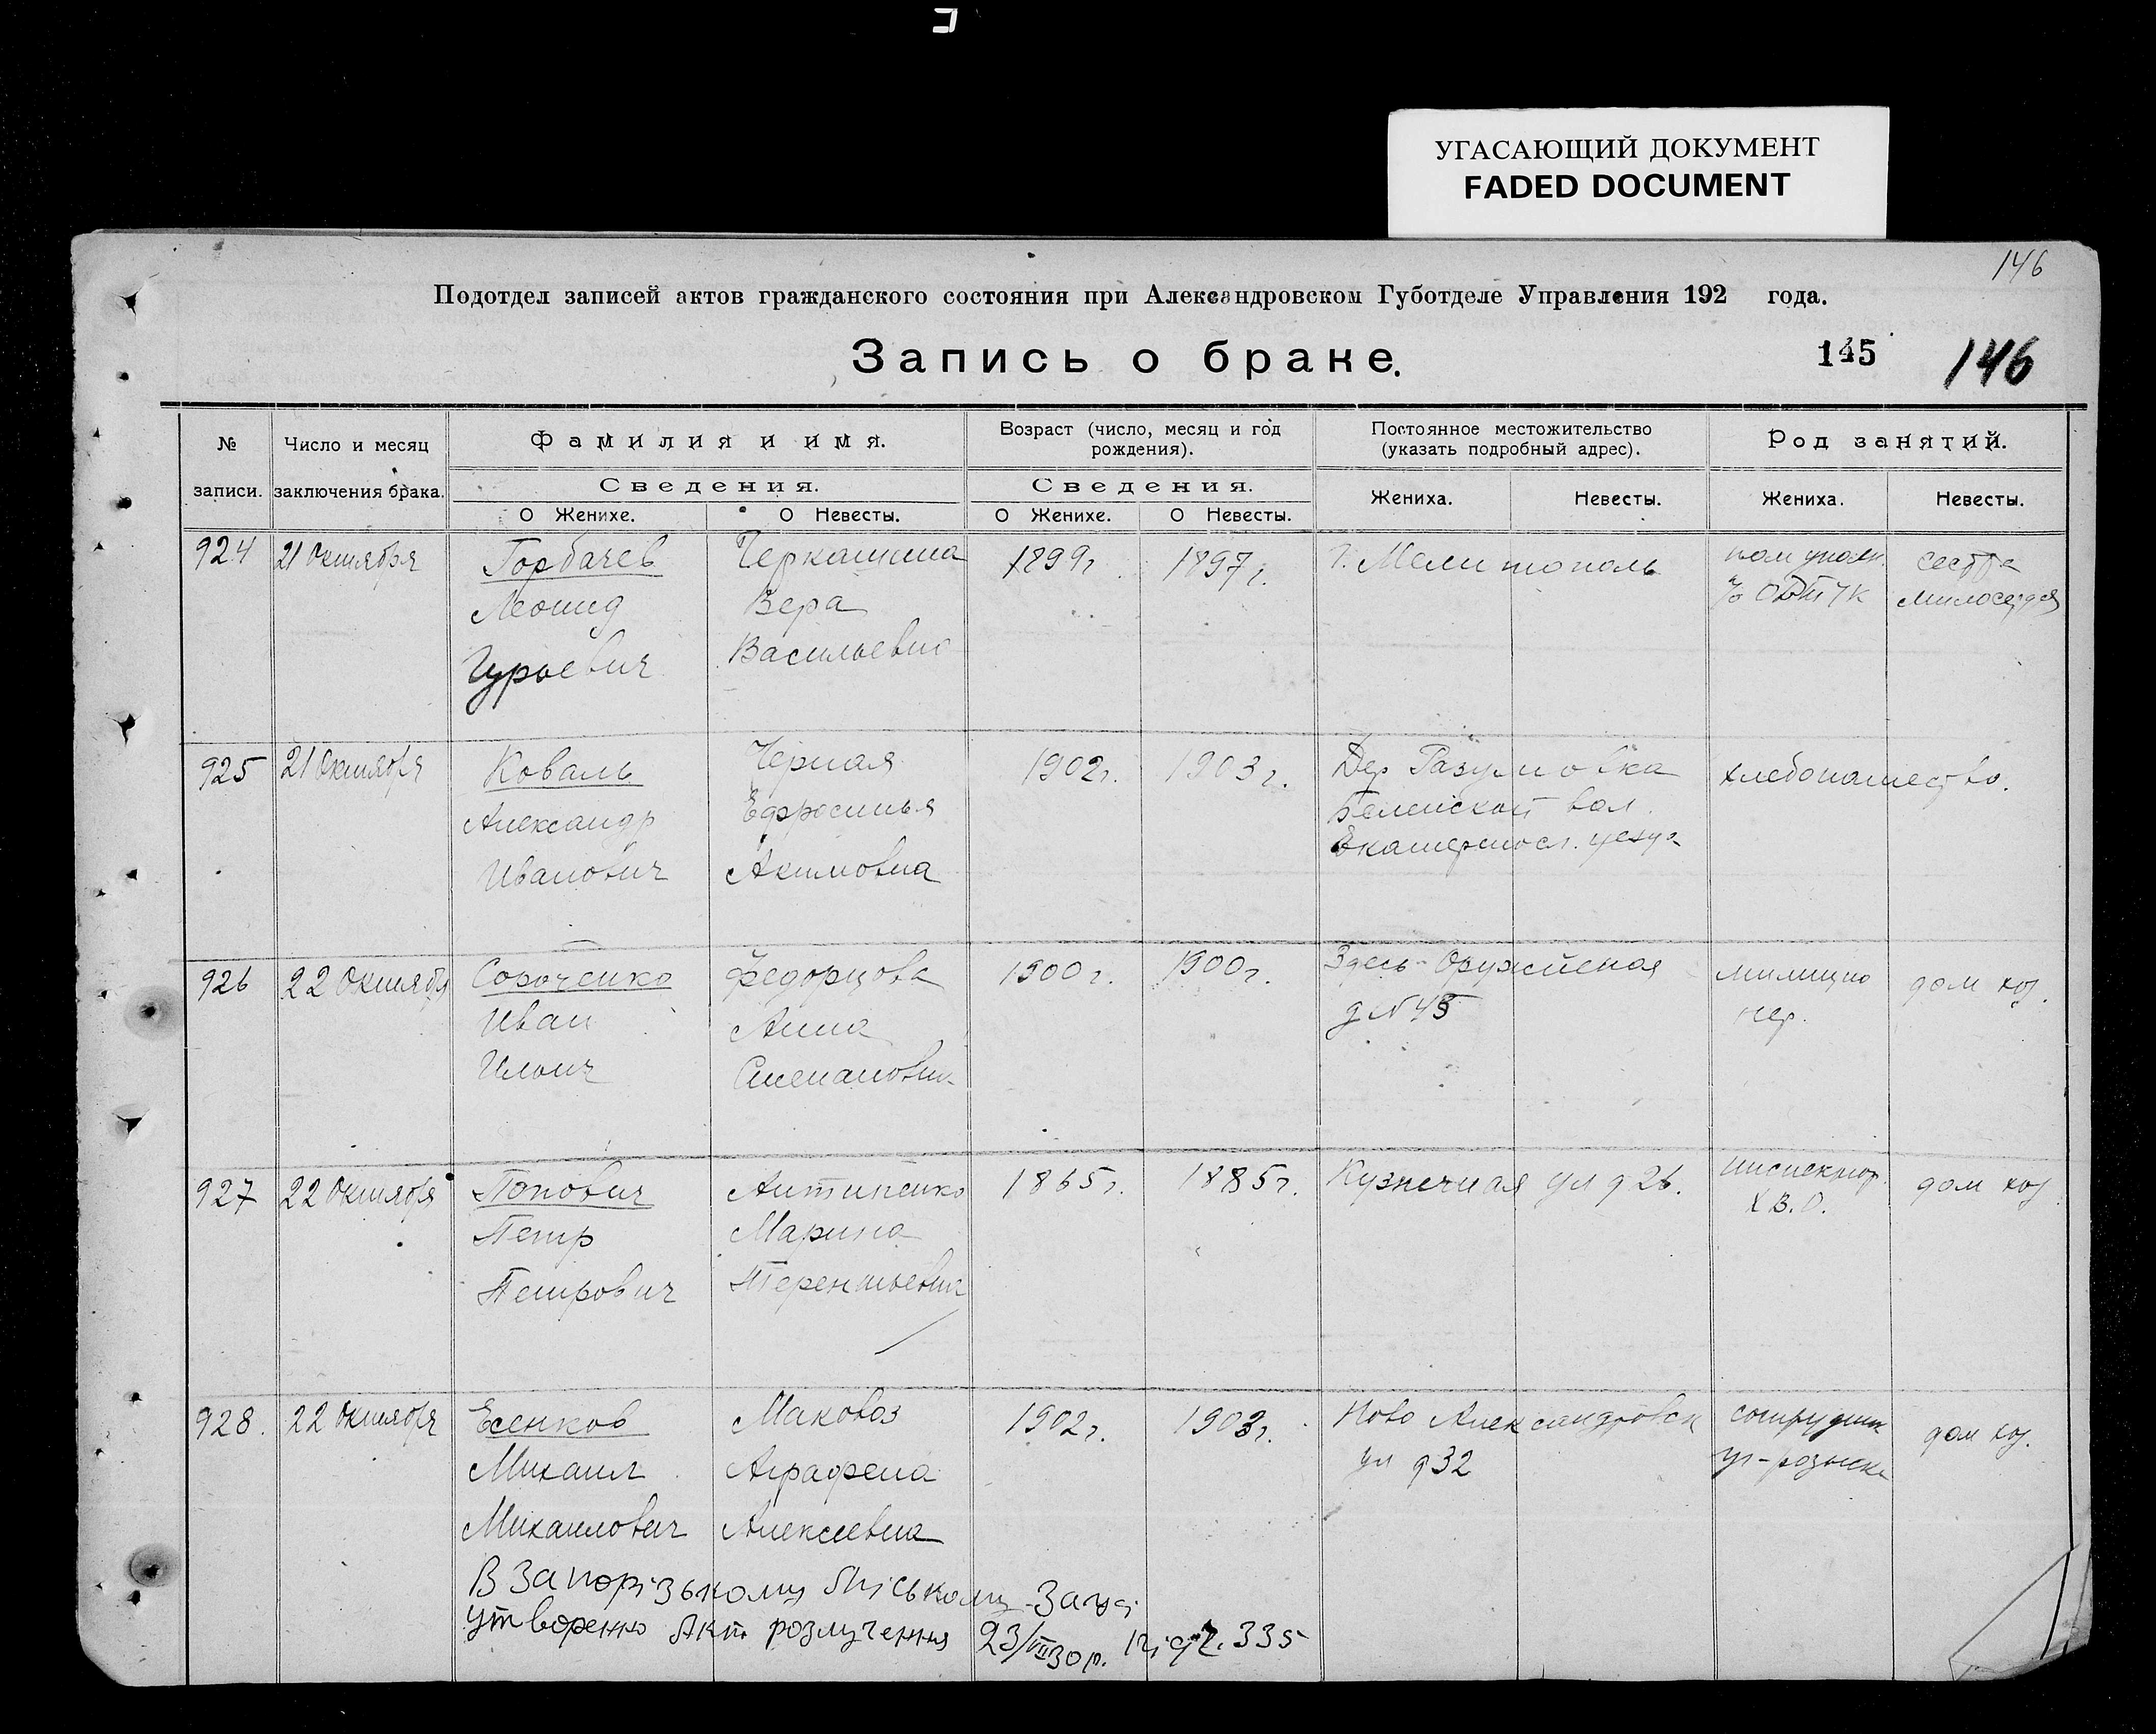 УГАСАЮЩИЙ ДОКУМЕНТ
FADED DOCUMENT
146
Подотдел записей актов гражданского состояния при Александровском Губотделе Управления 192 года.
Запись о браке.
145 146
№ записи.
Число и месяц заключения брака.
Фамилия и имя.
Сведения.
О Женихе. О Невесты.
Возраст (число, месяц и год рождения).
Сведения.
О Женихе. О Невесты.
Постоянное местожительство (указать подробный адрес).
Жениха. Невесты.
Род занятий.
Жениха. Невесты.
924 21 Октября Горбачев Черкашина 1899г. 1897г. г. Мелитополь сестра
Леонид Вера милосердия
Гурьевич Васильевна
925 21 Октября Коваль Черная 1902г. 1903г. Дер Разумовка хлебопашество.
Александр Ефросинья вол.
Иванович Акимовна Екатериносл. уезда
926 22 Октября Сороченко Федорцова 1900г. 1900г. Здесь-Оружейная милицио дом хоз.
Иван Анна д №45 нер.
Ильич Степановна
927 22 Октября Попович Антипенко 1865г. 1885г. Кузнечная ул д 26. инспектор дом хоз
Петр Марина В.О.
Петрович Терентьевна
928. 22 Октября Есенков Маковоз 1902г. 1903г. Ново Александровск сотрудник дом хоз.
Михаил Аграфена ул д32 уг-розыска
Михаилович Алексеевна
В Запорізькому міському Загсі
утворенно Акт розлучення 23/VII 30 р. під ч. 335